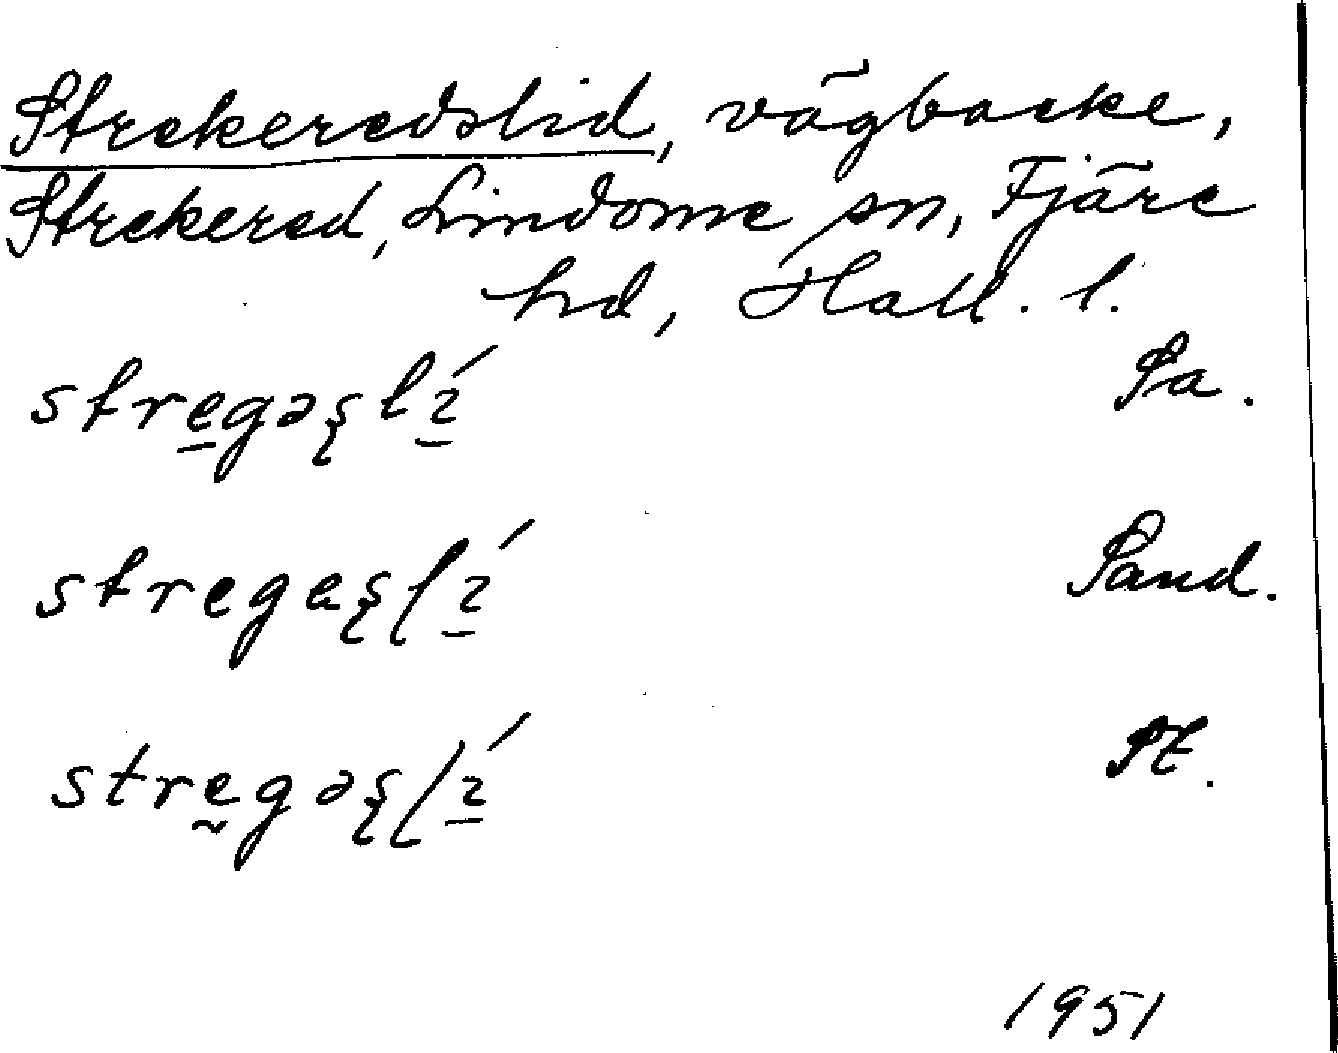 Strekeredslid, vägbacke,
Strekered, Lindome sn, Fjäre
hd, Hall. l.
stre̲gəʂlí̲ Sa.
stregeʂɭí̲ Sand.
strḛgəʂɭí̲ St.
1951